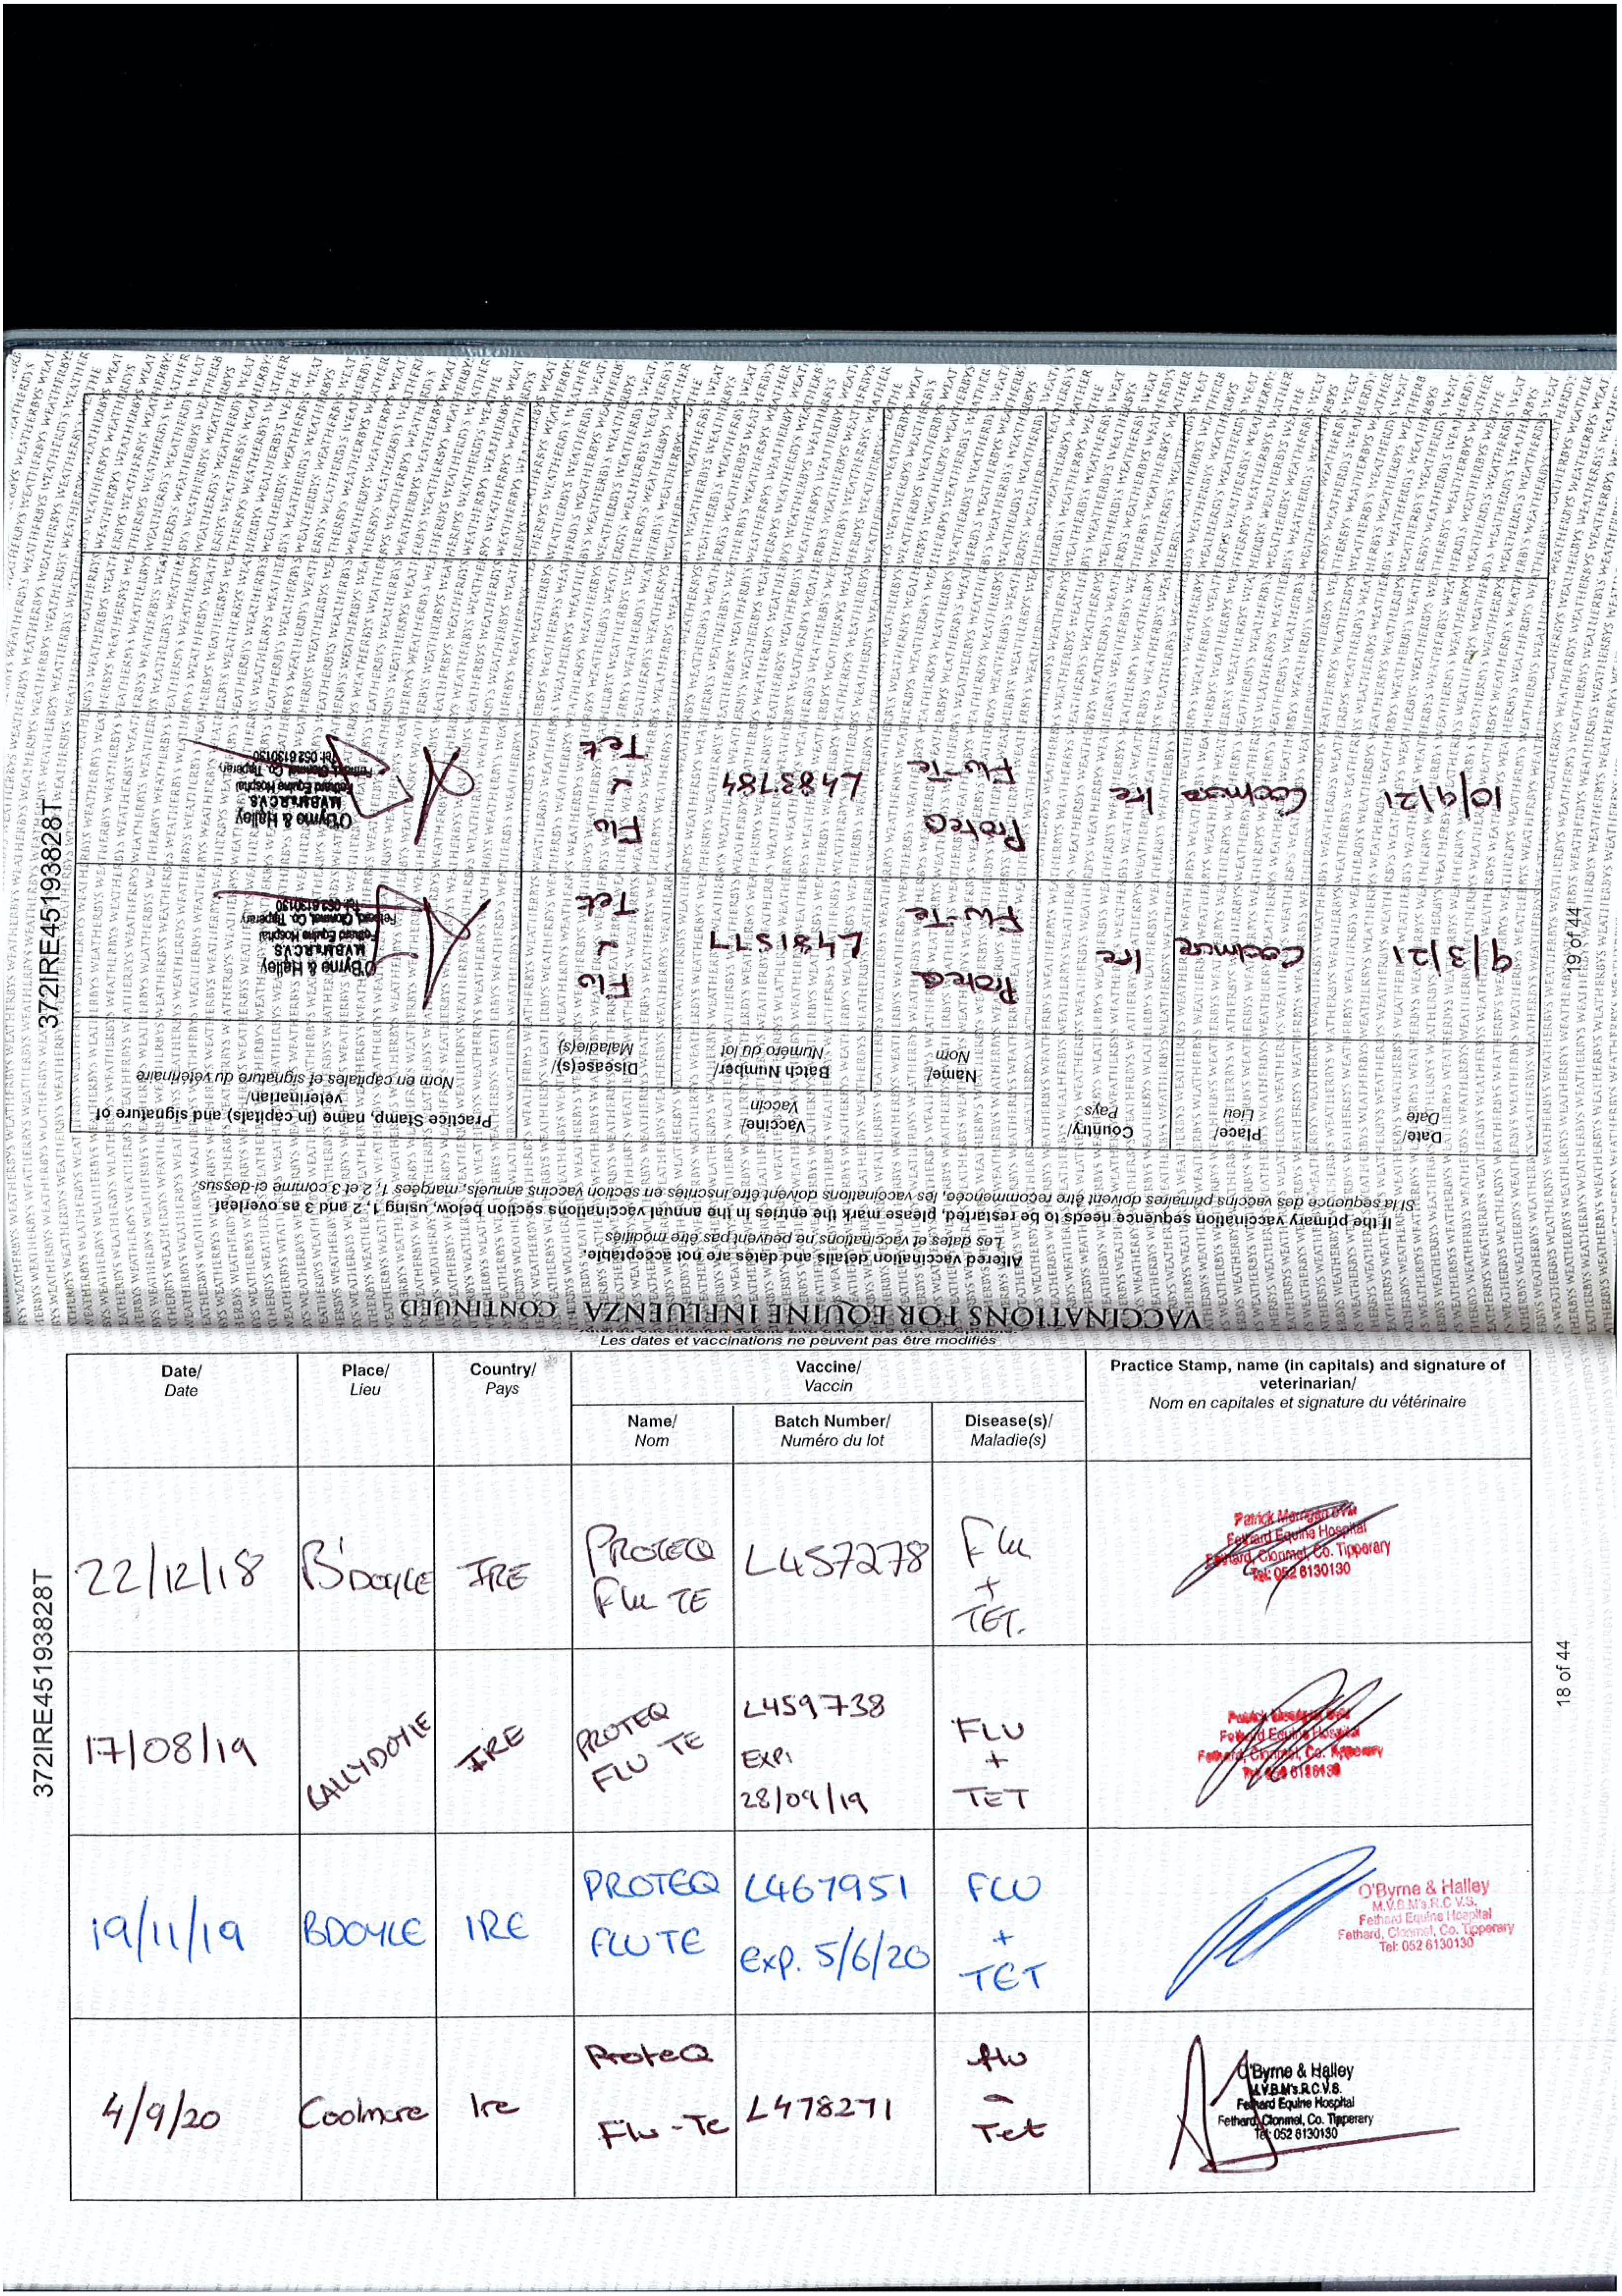 Les dates et vaccinations ne peuvent pas être modifiés
Date/
Date
Place/
Lieu
Country/
Pays
Vaccine/
Vaccin
Name/
Nom
Batch Number/
Numéro du lot
Disease(s)/
Maladie(s)
Practice Stamp, name (in capitals) and signature of
veterinarian/
Nom en capitales et signature du vétérinaire
22/12/18
B'DOYLE
IRE
PROTEQ
Flu TE
L457278
Flu
+
TET.
Fethard Equine Hospital
Fethard, Clonmel, Co. Tipperary
Tel: 052 6130130
17/08/19
BALLYDOYLE
IRE
PROTEQ
FLU TE
L459738
EXP:
28/09/19
FLU
+
TET
Fethard Equine Hospital
Fethard, Clonmel, Co. Tipperary
19/11/19
BDOYLE
IRE
PROTEQ
FLUTE
L467951
Exp. 5/6/20
FLU
+
TET
O'Byrne & Halley
M.V.B.M's.R.C.V.S.
Fethard Equine Hospital
Fethard, Clonmel, Co. Tipperary
Tel: 052 6130130
4/9/20
Coolmore
Ire
ProteQ
Flu-Te
L478271
flu
-
Tet
O'Byrne & Halley
M.V.B.M's.R.C.V.S.
Fethard Equine Hospital
Fethard, Clonmel, Co. Tipperary
Tel: 052 6130130
372IRE45193828T
18 of 44
VACCINATIONS FOR EQUINE INFLUENZA - CONTINUED
Altered vaccination details and dates are not acceptable.
Les dates et vaccinations ne peuvent pas être modifiés
If the primary vaccination sequence needs to be restarted, please mark the entries in the annual vaccinations section below, using 1, 2 and 3 as overleaf
Si la séquence des vaccins primaires doivent être recommencée, les vaccinations doivent être inscrites en section vaccins annuels, margées 1, 2 et 3 comme ci-dessus.
Date/
Date
Place/
Lieu
Country/
Pays
Vaccine/
Vaccin
Name/
Nom
Batch Number/
Numéro du lot
Disease(s)/
Maladie(s)
Practice Stamp, name (in capitals) and signature of
veterinarian/
Nom en capitales et signature du vétérinaire
9/3/21
Coolmore
Ire
ProteQ
Flu-Te
L481577
Flu
Tet
O'Byrne & Halley
M.V.B.M's.R.C.V.S.
Fethard Equine Hospital
Fethard, Clonmel, Co. Tipperary
Tel: 052 6130130
10/9/21
Coolmore
Ire
ProteQ
Flu-Te
L483784
Flu
Tet
O'Byrne & Halley
M.V.B.M's.R.C.V.S.
Fethard Equine Hospital
Fethard, Clonmel, Co. Tipperary
Tel: 052 6130130
372IRE45193828T
19 of 44